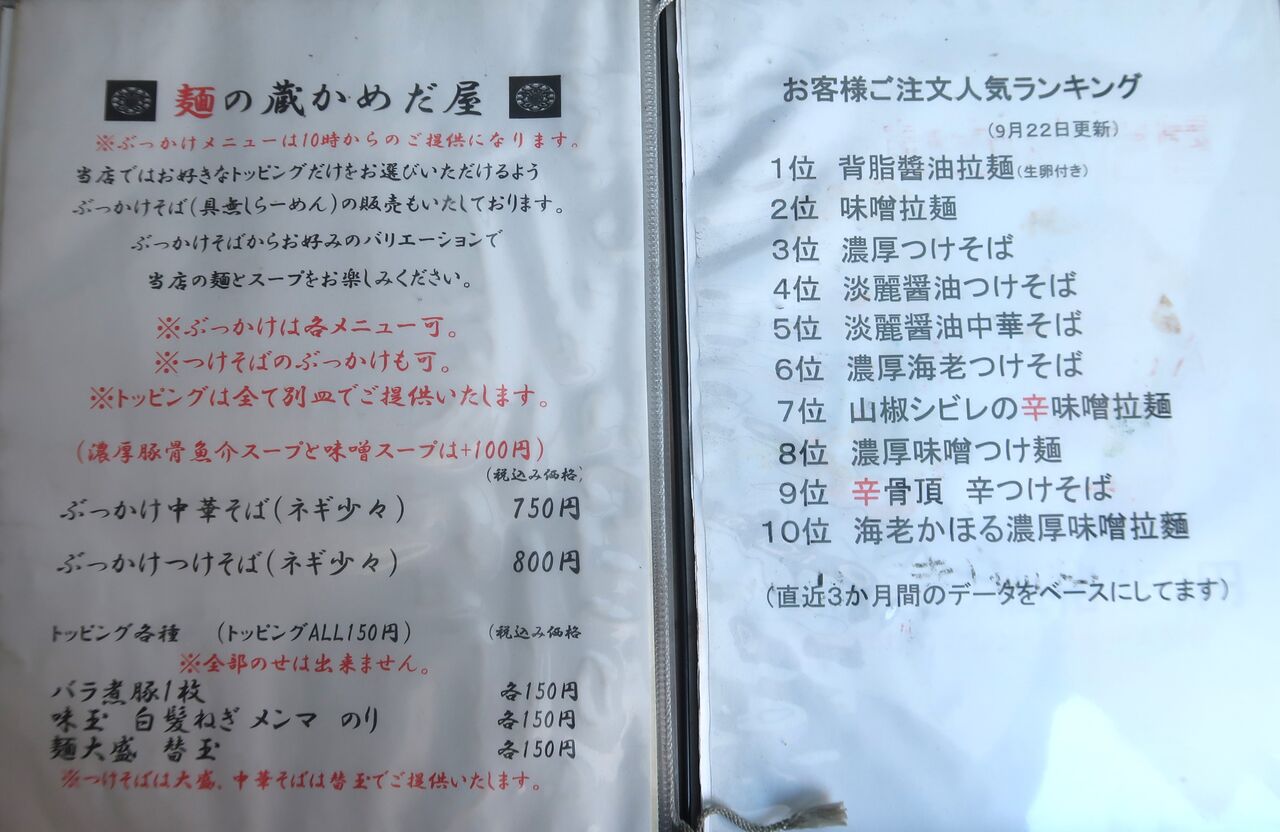 麺の蔵かめだ屋
※ぶっかけメニューは10時からのご提供になります。
当店ではお好きなトッピングだけをお選びいただけるよう
ぶっかけそば(具無しらーめん)の販売もいたしております。
ぶっかけそばからお好みのバリエーションで
当店の麺とスープをお楽しみください。
※ぶっかけは各メニュー可。
※つけそばのぶっかけも可。
※トッピングは全て別皿でご提供いたします。
(濃厚豚骨魚介スープと味噌スープは+100円)
(税込み価格)
ぶっかけ中華そば(ネギ少々) 750円
ぶっかけつけそば(ネギ少々) 800円
トッピング各種 (トッピングALL150円) (税込み価格
※全部のせは出来ません。
バラ煮豚1枚 各150円
味玉 白髪ねぎ メンマ のり 各150円
麺大盛 替玉 各150円
※つけそばは大盛、中華そばは替玉でご提供いたします。
お客様ご注文人気ランキング
(9月22日更新)
1位 背脂醤油拉麺(生卵付き)
2位 味噌拉麺
3位 濃厚つけそば
4位 淡麗醤油つけそば
5位 淡麗醤油中華そば
6位 濃厚海老つけそば
7位 山椒シビレの辛味噌拉麺
8位 濃厚味噌つけ麺
9位 辛骨頂 辛つけそば
10位 海老かほる濃厚味噌拉麺
(直近3か月間のデータをベースにしてます)